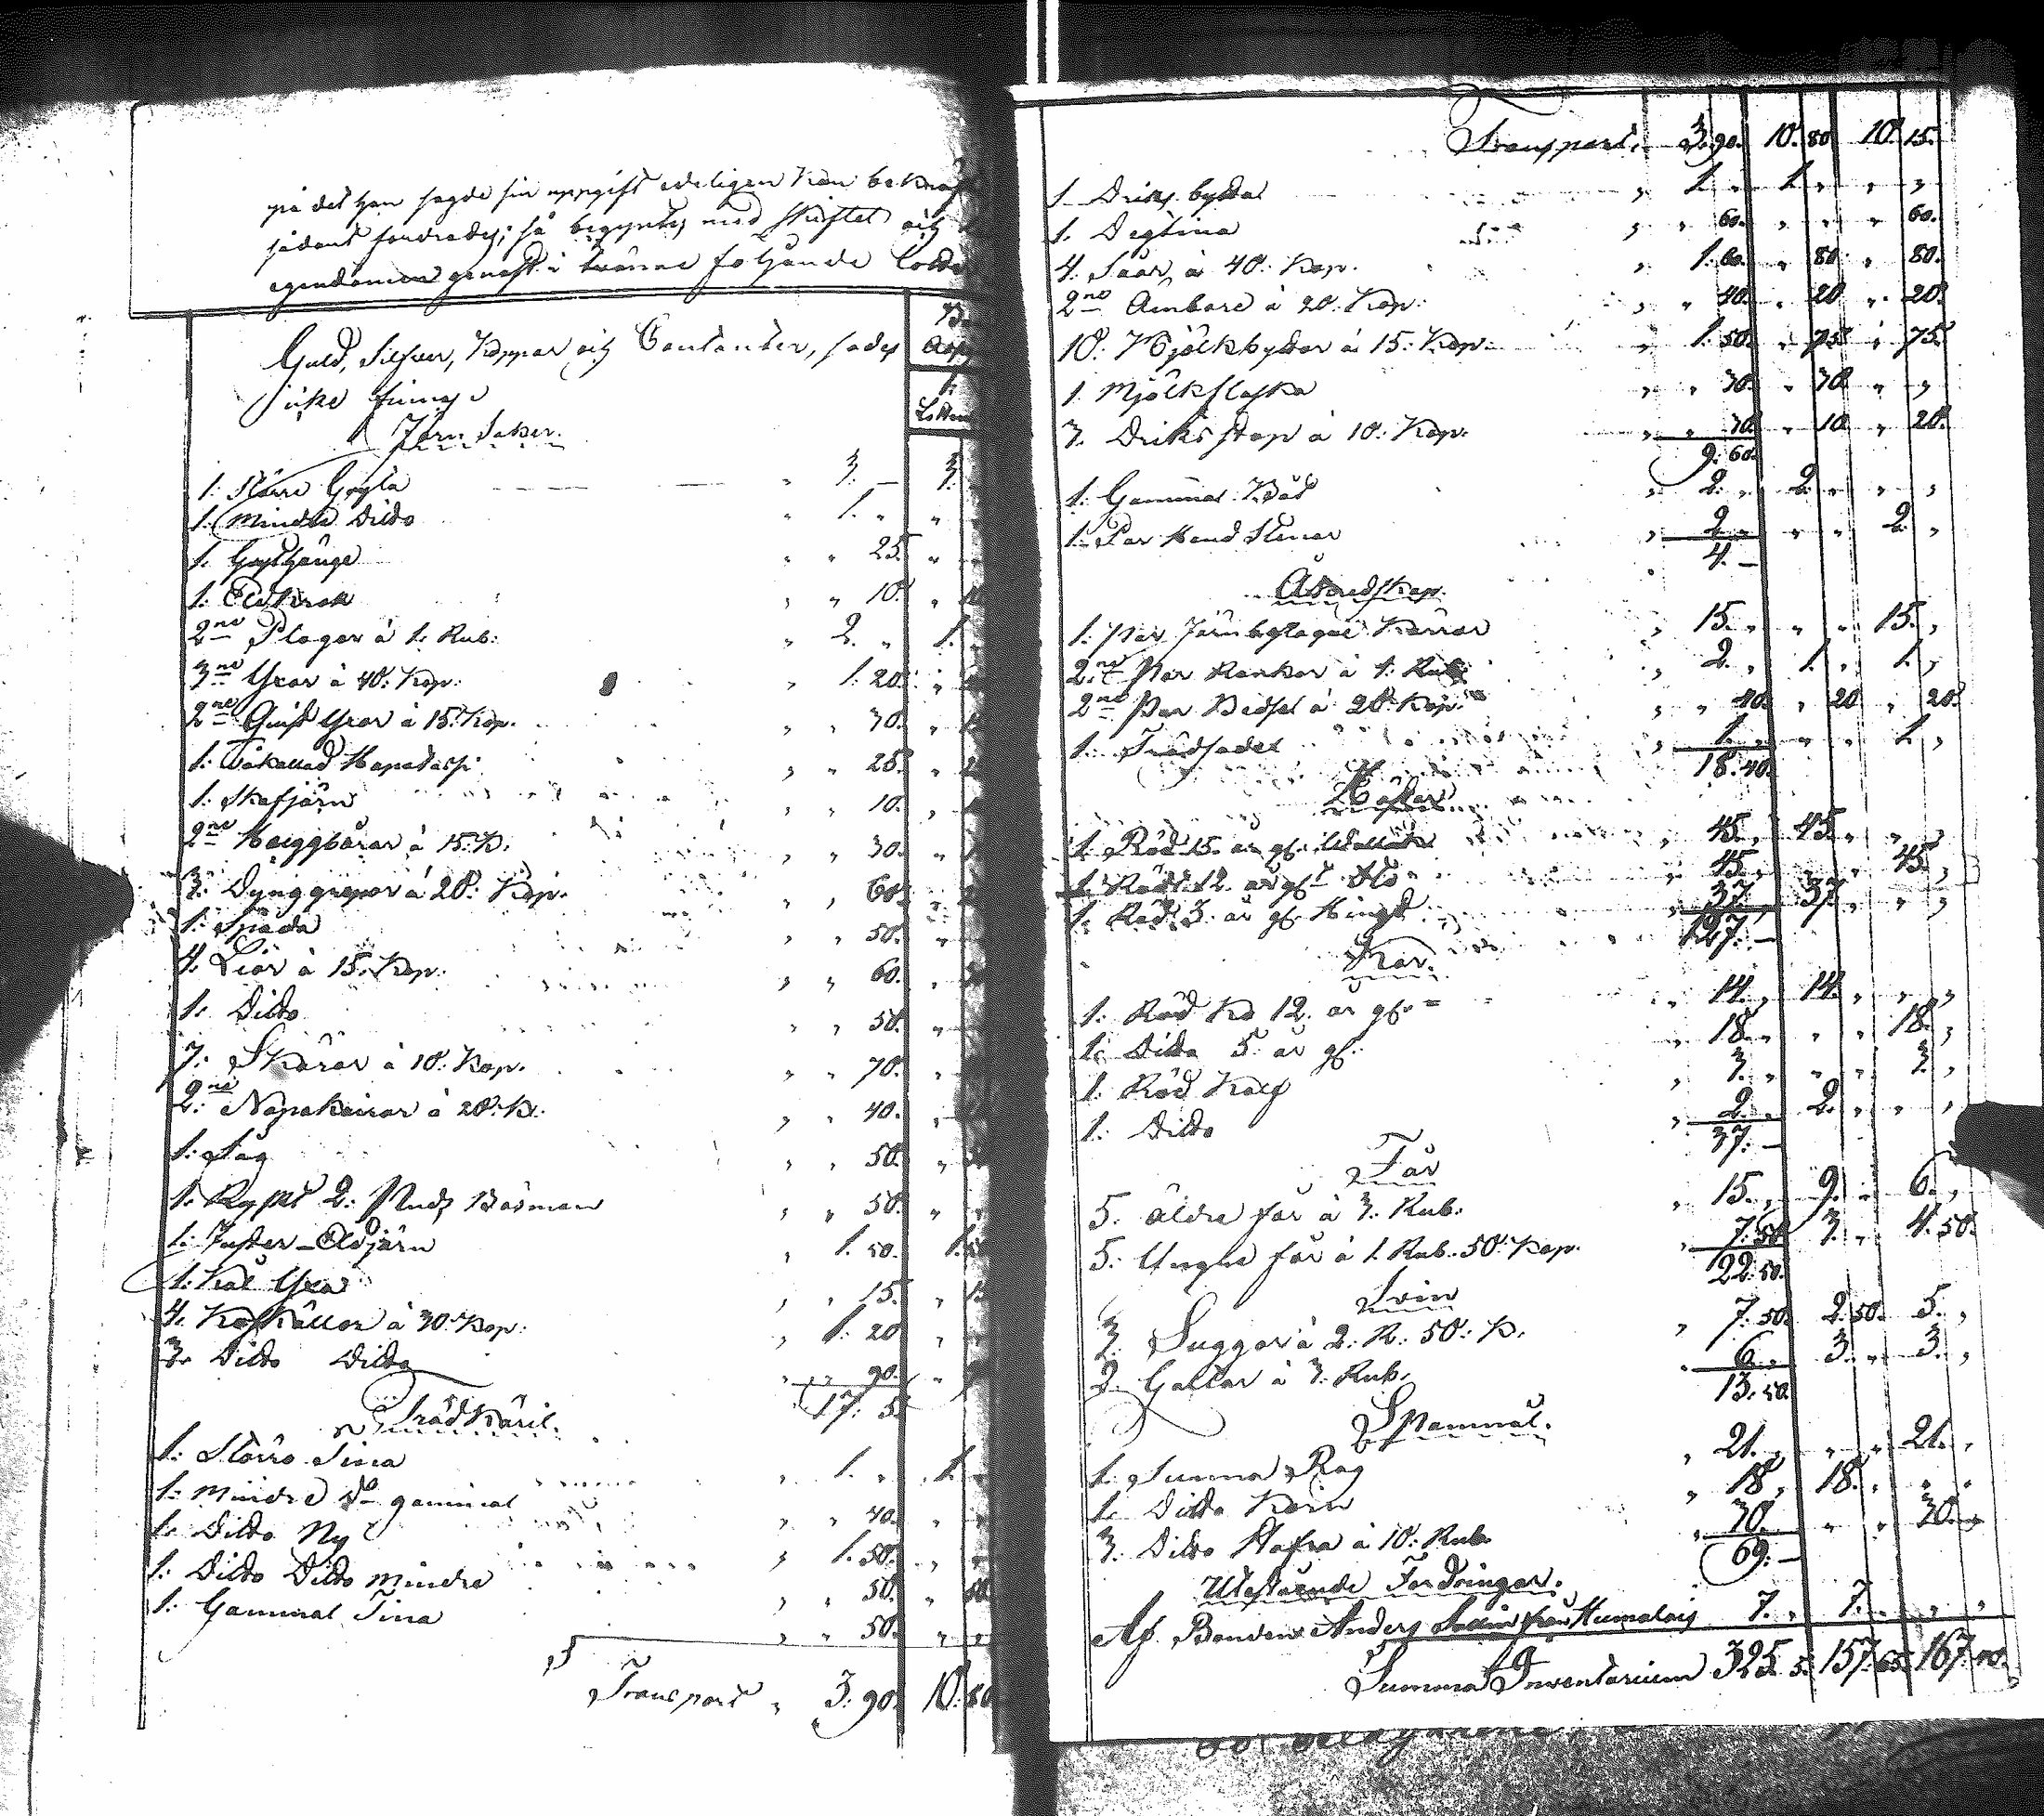 på det han sagde sin uppgift edeligen kan bekräf
sådant fordrades; så begyntes med skiftet och
egendomen genast i tvänne följande lotter
Guld, Silfver, Koppar och Contanter, sades
icke finnas
1.
Lotten
Järn Saker.
1. Större Gryta " 3. — 3.
1. Mindre Dito " 1. " "
1. Grythänge " " 25. "
1. Eldkrok " " 10. " 10
2ne Plogar à 1. Rub: " 2. " 1.
3ne Yxor à 40. Kop: " 1. 20. "
2ne Quist Yxor à 15. Kop. " " 30. "
1. Såkallad " " 25. "
1. Skafjärn " " 10. "
2ne à 15. K. " " 30. "
3. Dynggrepar à 20. Kop. " " 60. "
1. Spada " " 50. "
4. Liar à 15. Kop. " " 60. "
1. Dito " " 50. "
7. Skäror à 10. Kop. " " 70. "
2ne à 20. K. " " 40. "
1. Såg " " 50. "
1. Ryskt 2. Puds Bösman " " 50. " "
1. Eldjärn " 1. 50. 1. 50
1. Kål Yxa " " 15. " 15
4. à 30. Kop: " 1. 20 "
3. Dito Dito " " 90. "
17. 5.
Trädkäril.
1. Större Tina " 1. " 1.
1. Mindre do gammal " " 40. " "
1. Dito Ny " 1. 50. " "
1. Dito Dito mindre " " 50. " 50
1. Gammal Tina " " 50. " "
Transport " 3. 90. 10. 80
Transport. 3. 90. 10. 80 10. 15.
1. Driks bytta " 1. " 1. " " "
1. Degtina " " 60. " " " 60.
4. Såar à 40. Kop. " 1. 60. " 80 " 80.
2ne Ämbare à 20. Kop: " " 40. " 20 " 20.
10. Mjölkbyttor à 15. Kop: " 1. 50. " 75 " 75.
1. Mjölkflaska " " 30. " 30 " "
3. Driks stop à 10. Kop. " " 30. " 10. " 20.
9. 60.
1. Gammal Båt " 2. " 2. " " "
1. Par Hand Stenar " 2. " " " 2. "
4. —
Åkredskap.
1. Par Järnbeslagne Kärror " 15. " " " 15. "
2ne Par Rankor à 1. Rub. " 2. " 1. " 1. "
2ne Par Bedsel à 20. Kop. " " 40. " 20 " 20.
1. Trädsadel " 1. " " " 1. "
18. 40.
Hästar
1. Röd 15. år gl. Wallack " 45. " 45. " " "
1. Röd 12. år gl. Sto " 45. " " " 45. "
1. Röd 3. år gl. Hingst " 37. " 37 " " "
127. —
Kor.
1. Röd Ko 12. år gl. " 14. " 14. " " "
1. Dito 5. år gl. " 18. " " " 18. "
1. Röd Kalf " 3. " " " 3. "
1. Dito " 2. " 2. " " "
37. —
Får
5. äldre får à 3. Rub. " 15. " 9. " 6. "
5. Yngre får à 1. Rub. 50. Kop. " 7. 50. 3. " 4. 50.
22. 50.
Svin
3. Suggor à 2. R. 50. K. " 7. 50. 2. 50. 5. "
2. Galtar à 3. Rub. " 6. " 3. " 3. "
13. 50.
Spanmål.
1. Tunna Råg " 21. " " " 21. "
1. Ditto Korn " 18. " 18. " " "
3. Dito Hafra à 10. Rub. " 30. " " " 30. "
69. —
Utestående Fordringar.
Af Bonden Anders från Humalais 7. " 7. " " "
Summa Inventarium 325. 5. 157. 65. 167. 40.